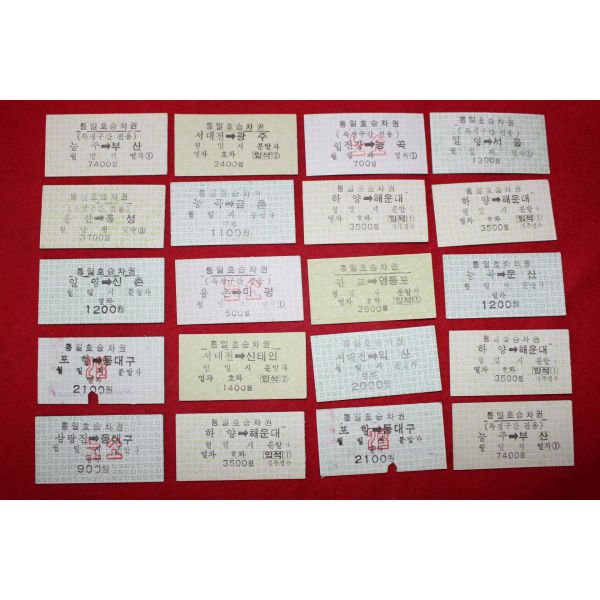 통일호승차권
(특정구간 전용)
능 주➡부 산
월 일 시 분발차
열차①
7400원
통일호승차권
서대전➡광 주
월 일 시 분발차
열차 호차 입석②
2400원
통일호승차권
(특정구간 전용)
임진강➡능 곡
월 일 열차①
700원
통일호승차권
(특정구간 전용)
일 영➡서 울
월 일 시
1300원
통일호승차권
(특정구간 전용)
➡홍 성
3700원
통일호승차권
능 곡➡금 촌
월 일 시
1100원
통일호승차권
하 양➡해운대
월 일 시 분발차
열차 호차 입석①
3500원
통일호승차권
하 양➡해운대
월 일 시 분발차
열차 호차 입석①
3500원
통일호승차권
일 영➡신 촌
월 일 시 분발차
열차
1200원
통일호승차권
(특정구간 전용)
500원
통일호승차권
판 교➡영등포
월 일 시 분발차
열차 호차 입석①
2600원
통일호승차권
능 곡➡문 산
월 일 시 분발차
열차
1200원
통일호승차권
포 항➡동대구
월 일 분발차
2100원
통일호승차권
서대전➡신태인
월 일 시 분발차
열차 호차 입석②
1400원
통일호승차권
➡익 산
월 일 시
2000원
통일호승차권
하 양➡해운대
월 일 시 분발차
열차 호차 입석①
3500원
통일호승차권
삼랑진➡동대구
월 일
900원
통일호승차권
하 양➡해운대
월 일 시 분발차
열차 호차 입석①
3500원
통일호승차권
포 항➡동대구
월 일 분발차
2100원
통일호승차권
(특정구간 전용)
능 주➡부 산
월 일 시 분발차
열차①
7400원